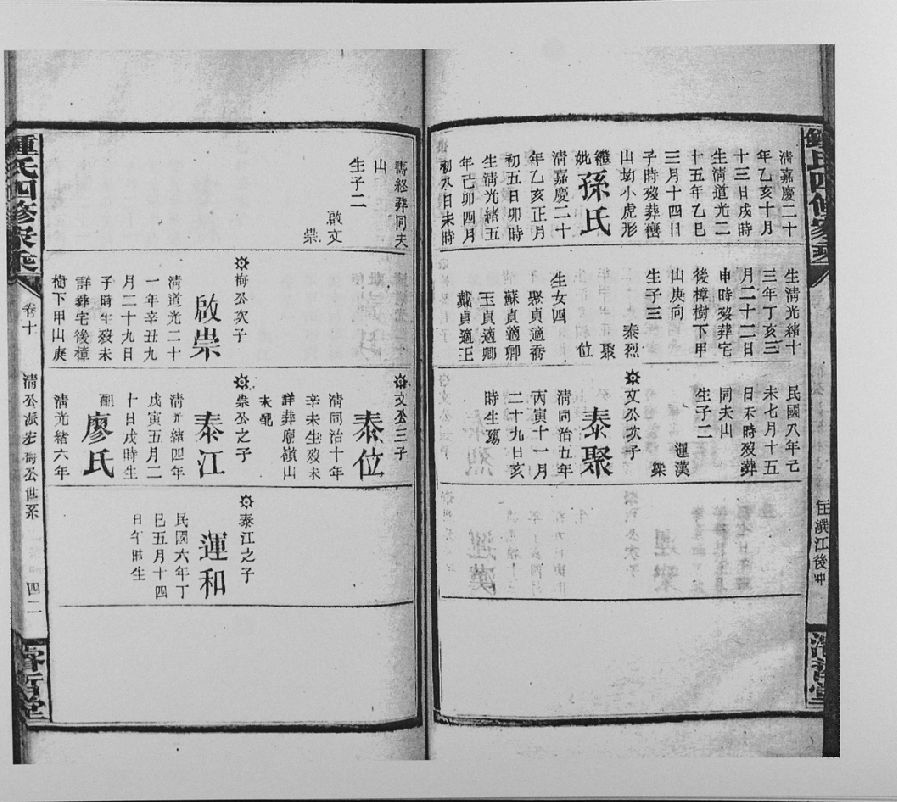 鍾氏四修家乘
清嘉慶二十
年乙亥十月
十三日戌時
生清道光二
十五年乙巳
三月十四日
子時歿葬
山坳小虎形
繼妣孫氏
清嘉慶二十
年乙亥正月
初五日卯時
生清光緒五
年己卯四月
初八日未時
生清光緒十
三年丁亥三
月二十二日
申時歿葬宅
後樟樹下甲
山庚向
生子三
泰烈
聚
位
生女四
聚貞適喬
蘇貞適卿
玉貞適卿
戴貞適王
民國八年己
未七月十五
日未時歿葬
同夫山
生子二
運漢
榮
文公次子
泰聚
清同治五年
丙寅十一月
二十九日亥
時生
壽終葬同夫
山
生子二
啟文
崇
梅公次子
啟崇
清道光二十
一年辛丑九
月二十九日
子時生歿未
詳葬宅後樟
樹下甲山庚
文公三子
泰位
清同治十年
辛未生歿未
詳葬鵝嶺山
未配
崇公之子
泰江
清光緒四年
戊寅五月二
十日戌時生
配
廖氏
清光緒六年
泰江之子
運和
民國六年丁
巳五月十四
日午時生
鍾氏四修家乘
卷十
四二